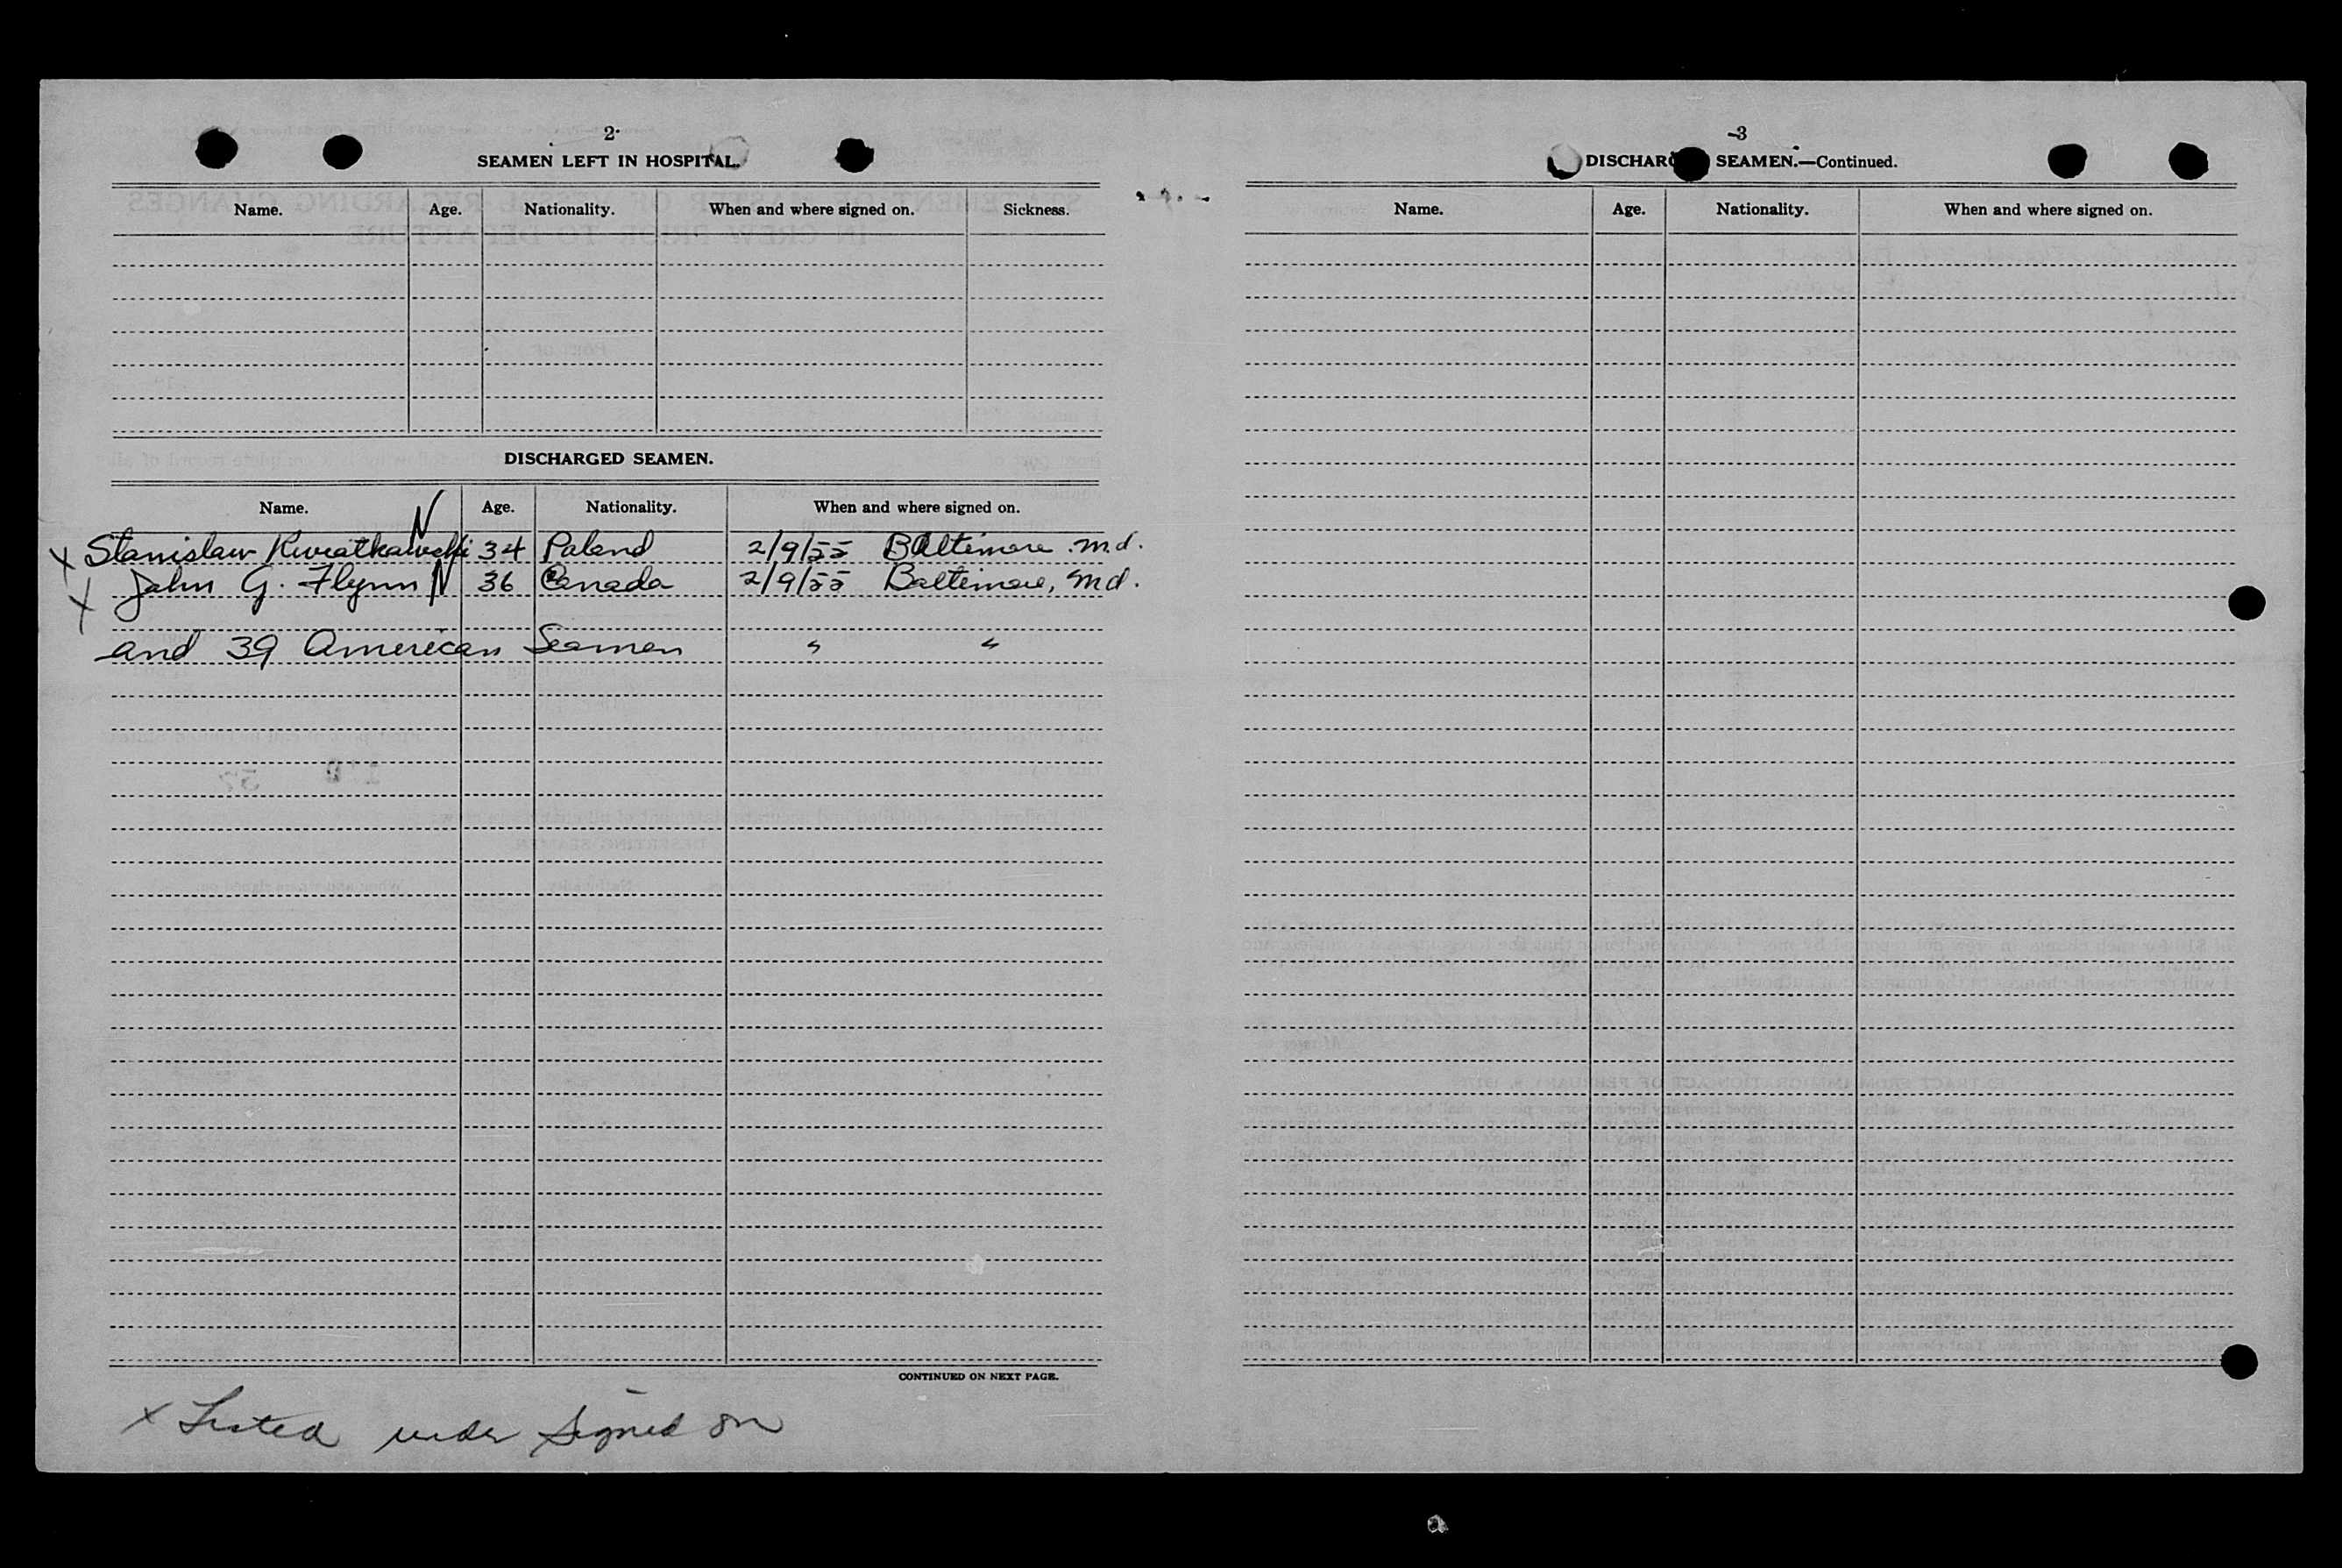 2
SEAMEN LEFT IN HOSPITAL.
Name. Age. Nationality. When and where signed on. Sickness.
DISCHARGED SEAMEN.
Name. Age. Nationality. When and where signed on.
N
x Stanislaw Kwiatkowski 34 Poland 2/9/55 Baltimore Md.
x John G. Flynn N 36 Canada 2/9/55 Baltimore, Md.
and 39 American Seamen " "
CONTINUED ON NEXT PAGE.
x Listed under Signed on
3
DISCHAR SEAMEN.—Continued.
Name. Age. Nationality. When and where signed on.